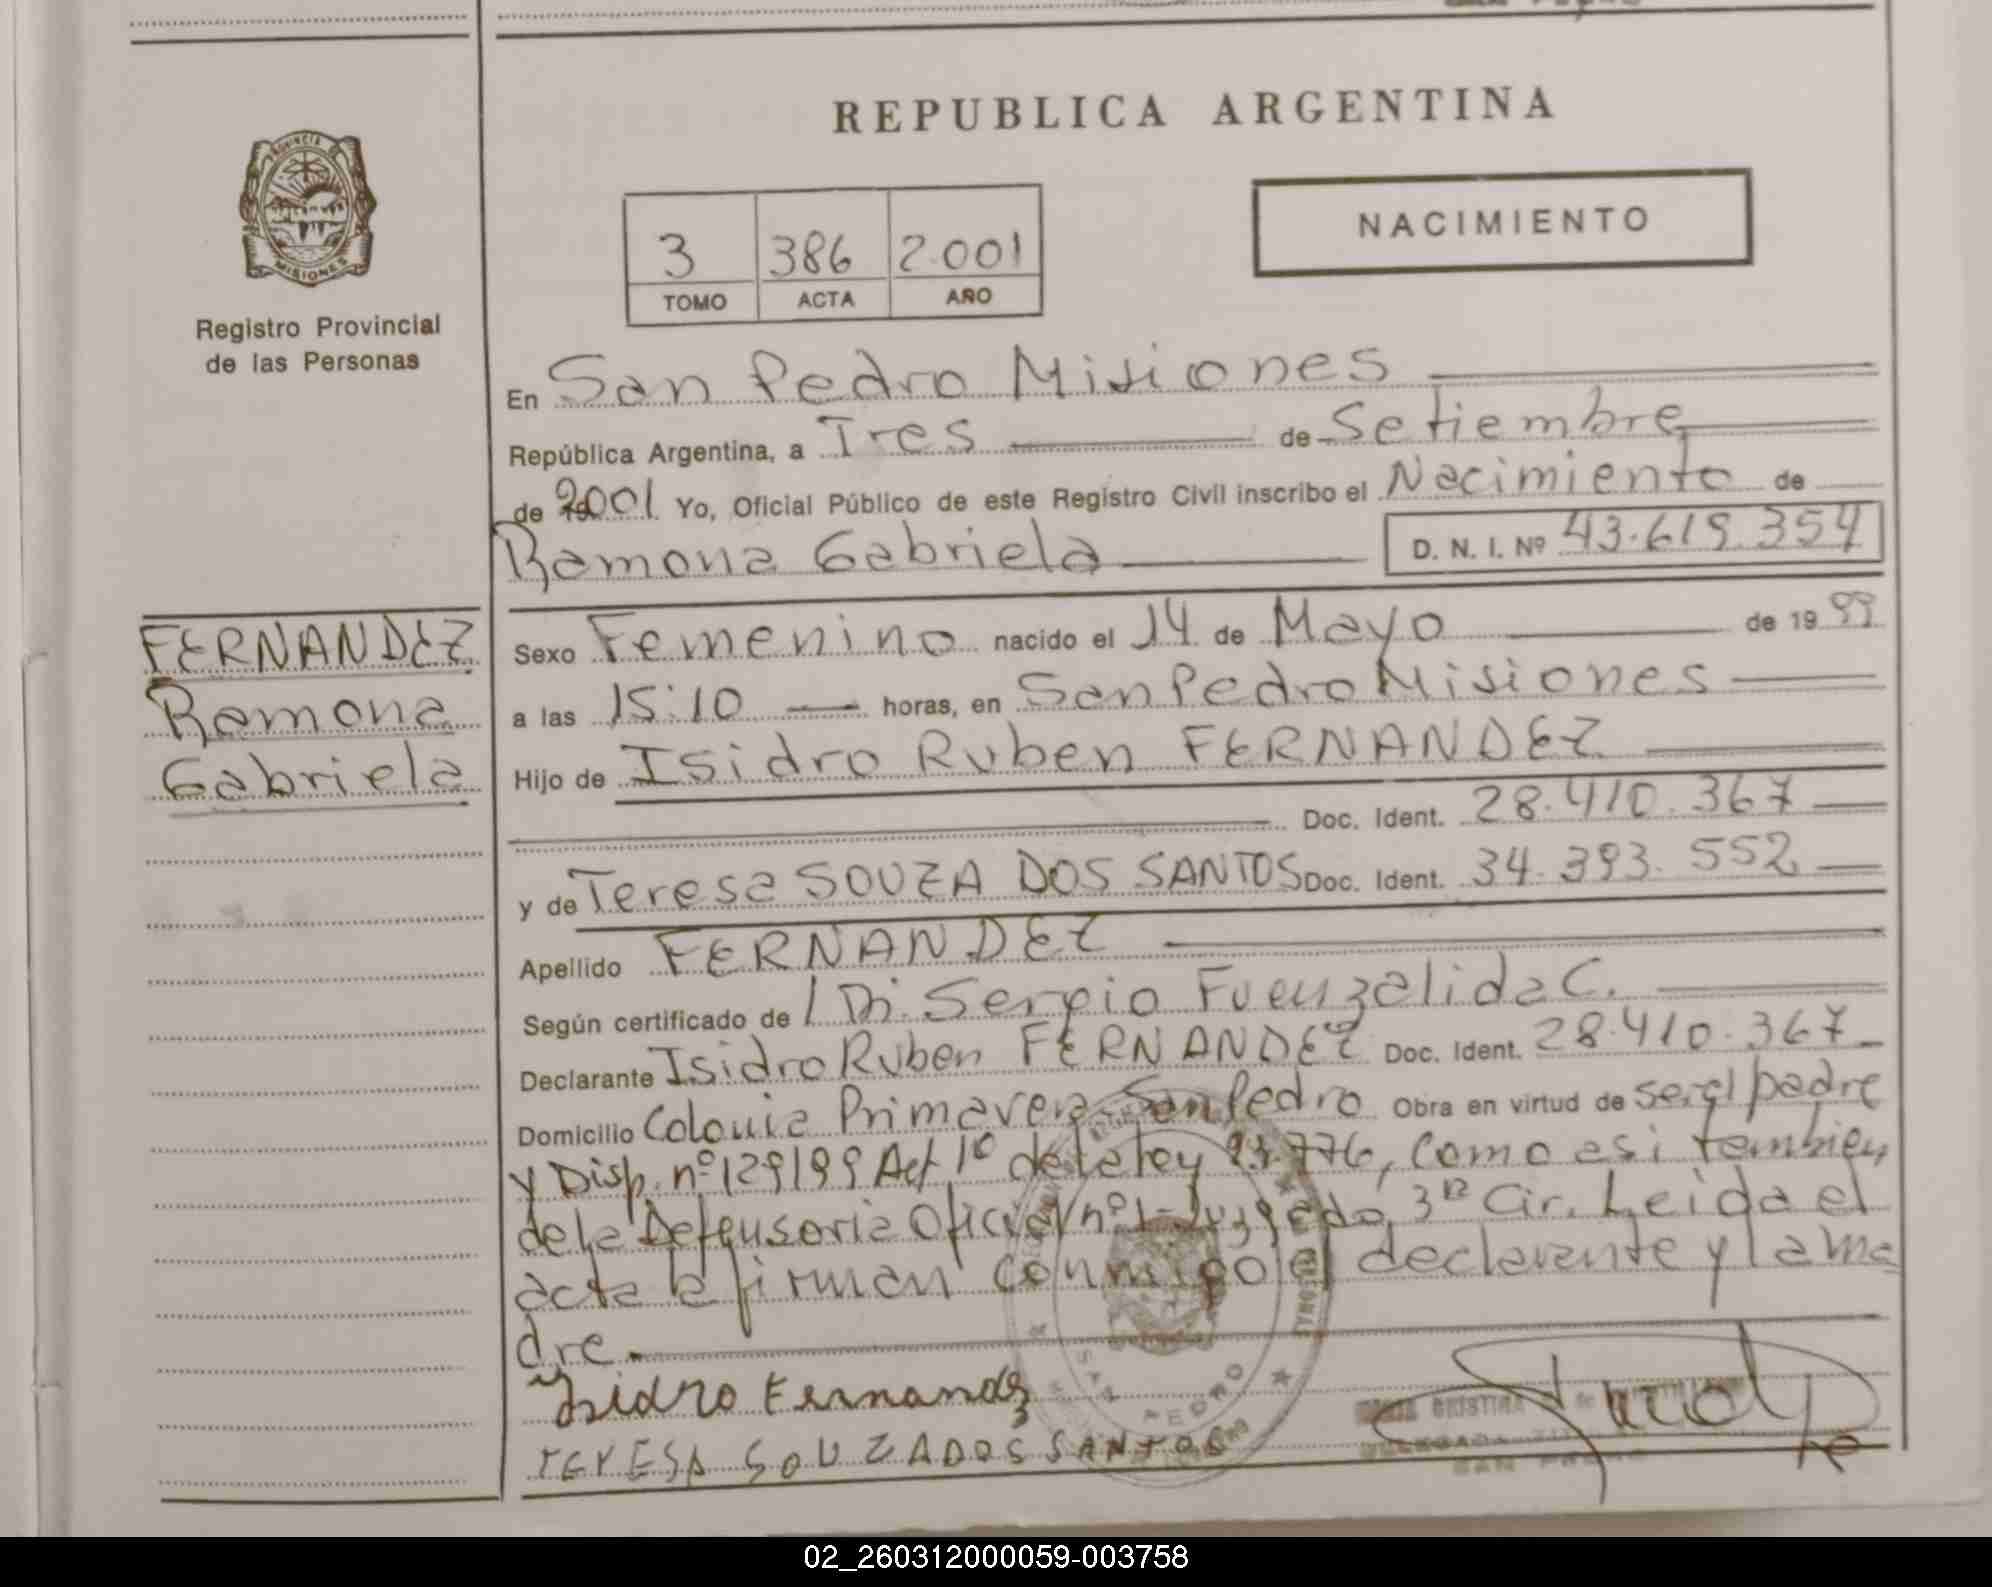 REPUBLICA ARGENTINA
PROVINCIA DE
MISIONES
Registro Provincial
de las Personas
3 386 2.001
TOMO ACTA AÑO
NACIMIENTO
En San Pedro Misiones
República Argentina, a Tres de Setiembre
de 2001 Yo, Oficial Público de este Registro Civil inscribo el Nacimiento de
Ramona Gabriela D. N. I. Nº 43.619.354
FERNANDEZ
Ramona
Gabriela
Sexo Femenino nacido el 14 de Mayo de 19 99
a las 15:10 horas, en San Pedro Misiones
Hijo de Isidro Ruben FERNANDEZ
Doc. Ident. 28.410.367
y de Teresa SOUZA DOS SANTOS Doc. Ident. 34.393.552
Apellido FERNANDEZ
Según certificado de Sergio Fuenzalida C.
Declarante Isidro Ruben FERNANDEZ Doc. Ident. 28.410.367
Domicilio Colonia Primavera San Pedro Obra en virtud de ser el padre
y Disp. nº 129/99 Art 1º de la Ley 776, como asi tambien
de la Defensoria Oficial nº 1 - Juzgado 3ra Cir. Leida el
acta la firman conmigo el declarante y la ma
dre.
Isidro Fernandz
TERESA SOUZA DOS SANTOS
SAN PEDRO
CRISTINA
02_260312000059-003758